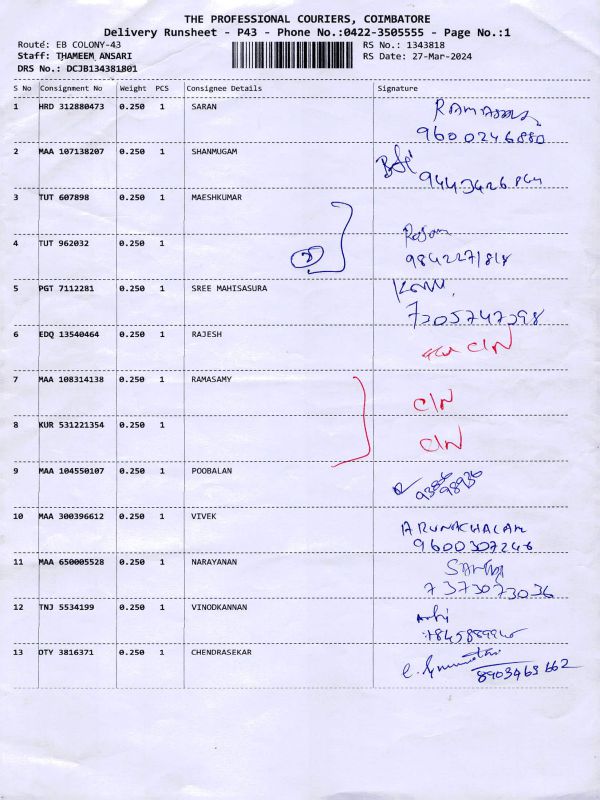 THE PROFESSIONAL COURIERS, COIMBATORE
Delivery Runsheet - P43 - Phone No.:0422-3505555 - Page No.:1
Route: EB COLONY-43 RS No.: 1343818
Staff: THAMEEM ANSARI RS Date: 27-Mar-2024
DRS No.: DCJB134381801
S No Consignment No Weight PCS Consignee Details Signature
1 HRD 312880473 0.250 1 SARAN
9600246880
2 MAA 107138207 0.250 1 SHANMUGAM
3 TUT 607898 0.250 1 MAESHKUMAR
4 TUT 962032 0.250 1
5 PGT 7112281 0.250 1 SREE MAHISASURA
7305747398
6 EDQ 13540464 0.250 1 RAJESH C/N
7 MAA 108314138 0.250 1 RAMASAMY C/N
8 KUR 531221354 0.250 1 C/N
9 MAA 104550107 0.250 1 POOBALAN
10 MAA 300396612 0.250 1 VIVEK ARUNACHALAM
9600307246
11 MAA 650005528 0.250 1 NARAYANAN
7373073036
12 TNJ 5534199 0.250 1 VINODKANNAN
13 DTY 3816371 0.250 1 CHENDRASEKAR